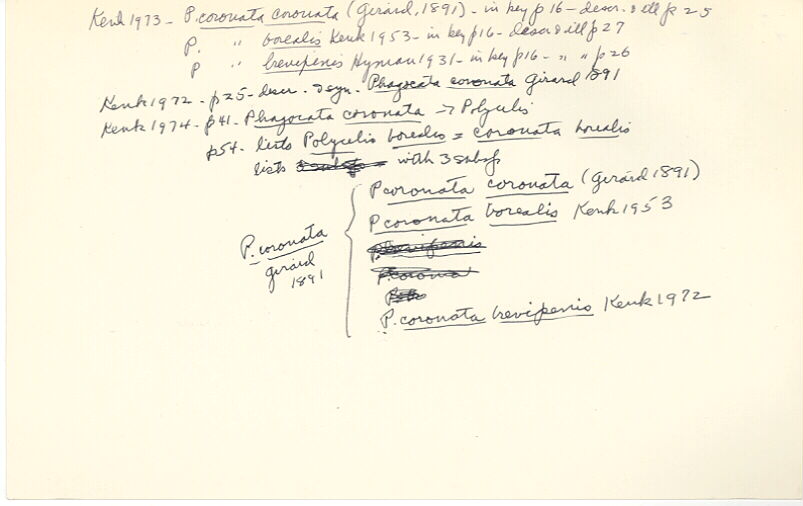 Kenk 1973 - P. coronata coronata (Girard, 1891) - in key p 16 - descr. & ill p 25
P. " borealis Kenk 1953 - in key p16 - descr & ill p 27
P " brevipenis Hyman 1931 - in key p16 - " " p 26
Kenk 1972 - p25 - descr. & syn. Phagocata coronata Girard 1891
Kenk 1974 - p41. Phagocata coronata → Polycelis
p54. lists Polycelis borealis = coronata borealis
lists with 3 subsp
P coronata coronata (Girard 1891)
P coronata borealis Kenk 1953
P. coronata
Girard
1891
P. coronata brevipenis Kenk 1972